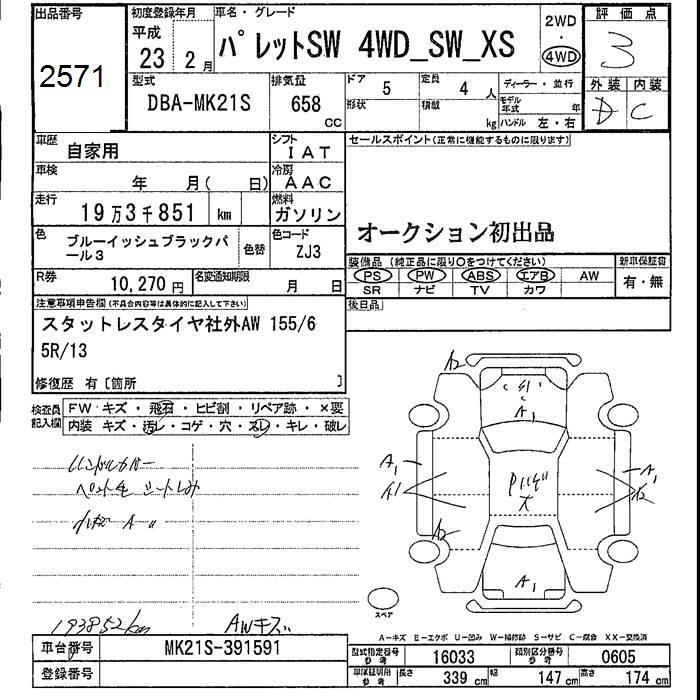 出品番号
2571
初度登録年月
平成
23 2月
車名・グレード
パレットSW 4WD_SW_XS
2WD
・
4WD
評価点
3
外装 内装
D C
型式
DBA-MK21S
排気量
658
CC
ドア
5
定員
4 人
形状
積載
kg
ディーラー・並行
モデル年式 年
ハンドル 左・右
車歴
自家用
シフト
IAT
車検
年 月( 日)
冷房
AAC
走行
19万3千851 km
燃料
ガソリン
色
ブルーイッシュブラックパ
ール3
色替
色コード
ZJ3
R券
10,270 円
名変通知期限
月 日
セールスポイント(正常に機能するものに限ります)
オークション初出品
装備品(純正品に限り○をつけてください)
PS PW ABS エアB AW
SR ナビ TV カワ
新車保証書
有・無
後日品
注意事項申告欄(不具合内容等は具体的に記入して下さい)
スタットレスタイヤ社外AW 155/6
5R/13
修復歴 有〔箇所 〕
検査員
記入欄
FW キズ・飛石・ヒビ割・リペア跡・×要
内装 キズ・汚レ・コゲ・穴・スレ・キレ・破レ
A2
A1
A1
A1
A1
A2
A2
A1
スペア
193852km
AWキズ
A-キズ E-エクボ U-凹み W-補修跡 S-サビ C-腐食 XX-交換済
車台番号
MK21S-391591
登録番号
型式指定番号
参考
16033
類別区分番号
参考
0605
車庫証明用
参考
長さ
339 cm
幅
147 cm
高さ
174 cm